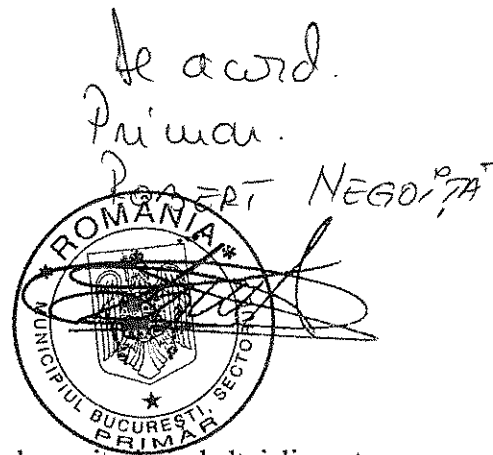 De acord.
Primar.
ROBERT NEGOIȚĂ
* ROMÂNIA *
MUNICIPIUL BUCUREȘTI, SECTOR
PRIMAR